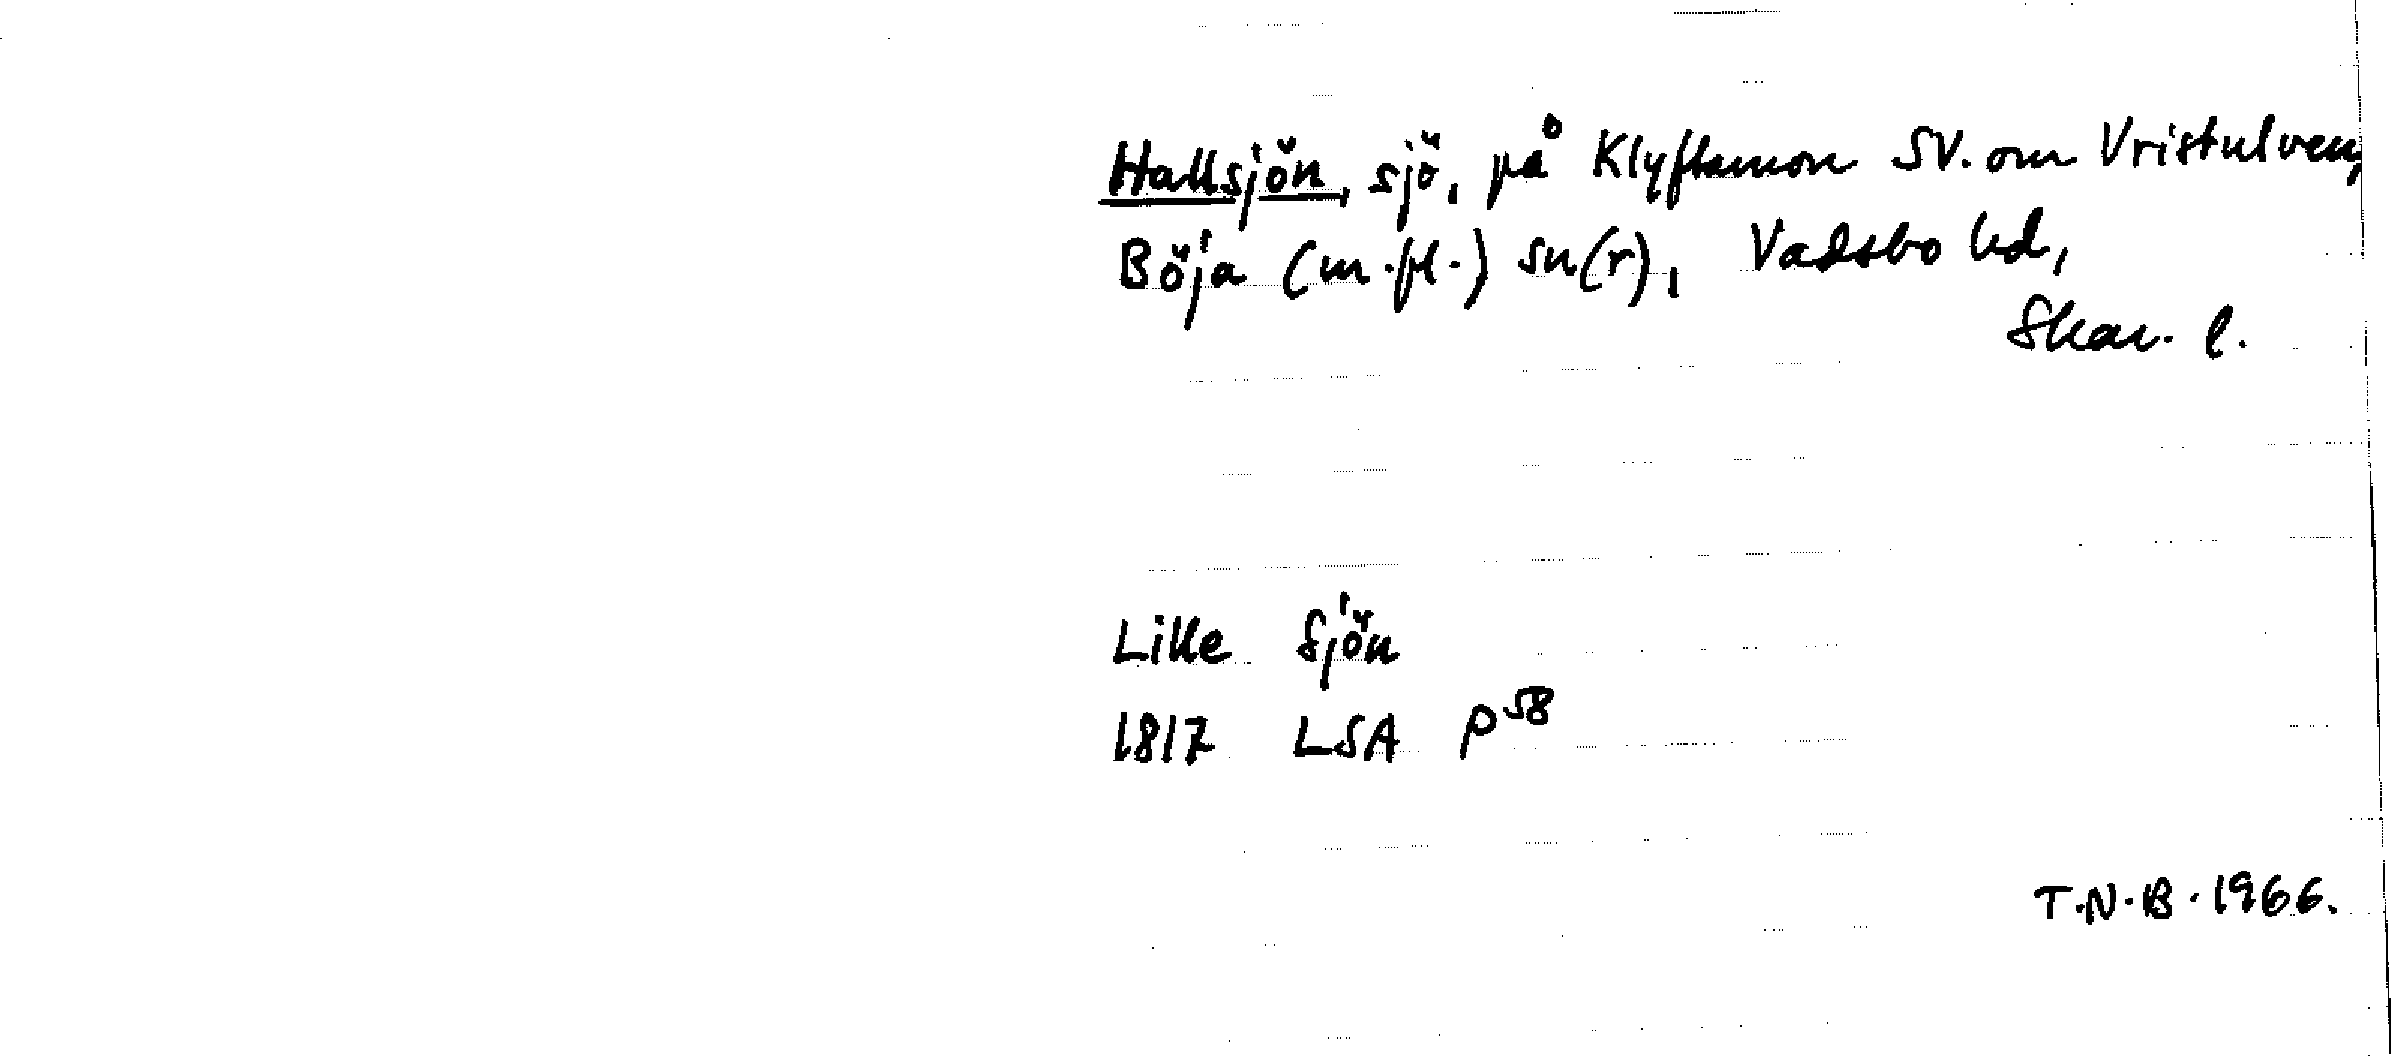 Hallsjön, sjö, på Klyftamon SV. om Vristulven,
Böja (m.fl.) sn(r), Vadsbo hd,
Skar. l.
Lille Sjön
1817 LSA P58
T.N.B. 1966.